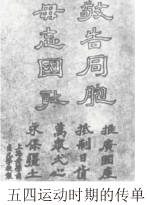 敬告同胞
毋忘國耻
推廣國產
抵制日貨
萬衆一心
永保疆土
五四运动时期的传单